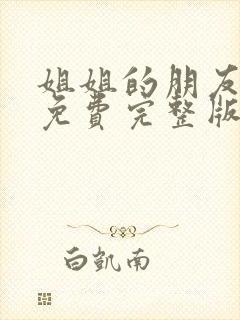 姐姐的朋友
免费完整版
白凯南